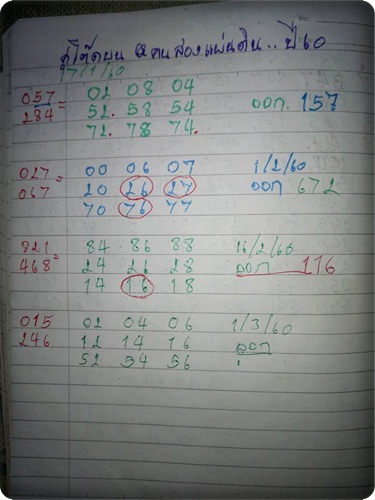 สูโต๊ดบน ๕ คนสองแผ่นดิน.. ปี 60
17/1/60
057 = 02 08 04
284 52. 58 54 ออก. 157
72. 78 74.
027 = 00 06 07 1/2/60
067 20 26 27 ออก 672
70 76 77
821 84 86 88 16/2/60
468 = 24 26 28 ออก 116
14 16 18
015 02 04 06 1/3/60
246 12 14 16 ออก
52 54 56